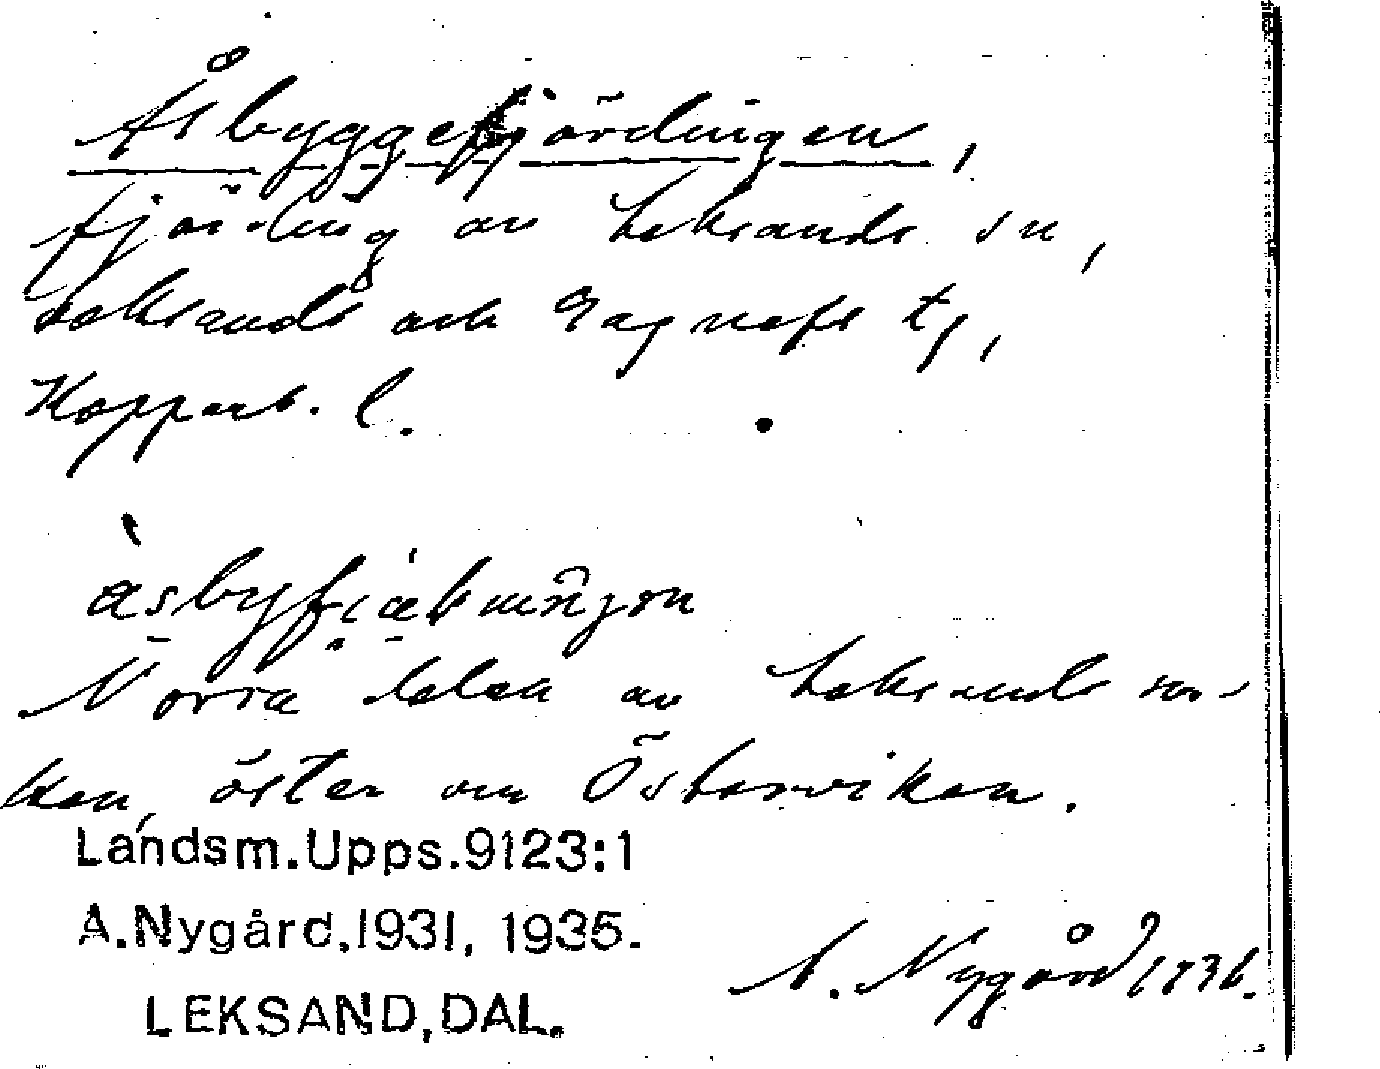 Åsbyggefjärdingen,
fjärding av Leksands sn,
Leksands och Gagnefs tg,
Kopparb. l.
Norra delen av Leksands soc-
ken, öster om Österviken.
Landsm.Upps.9123:1
A.Nygård,1931, 1935.
LEKSAND,DAL.
A. Nygård 1931.